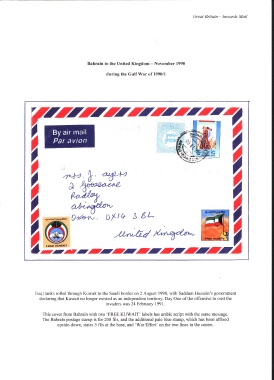 Great Britain - Inwards Mail
Bahrain to the United Kingdom - November 1990
during the Gulf War of 1990/1
By air mail
Par avion
Mrs. J. Ayers
2 Gooseacre
Radley
Abingdon
Oxon. OX14 3BL
United Kingdom
FREE KUWAIT
Iraqi tanks rolled through Kuwait to the Saudi border on 2 August 1990, with Saddam Hussein's government
declaring that Kuwait no longer existed as an independent territory. Day One of the offensive to oust the
invaders was 24 February 1991.
This cover from Bahrain with two "FREE KUWAIT" labels has arabic script with the same message.
The Bahrain postage stamp is for 200 fils, and the additional pale blue stamp, which has been affixed
upside down, states 5 fils at the base, and 'War Effort' on the two lines in the centre.